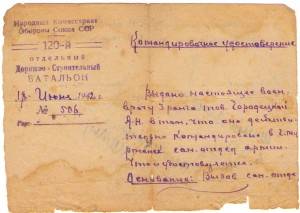 Народный Комиссариат
Обороны Союза ССР
120-й
отдельный
Дорожно-Строительный
БАТАЛЬОН
18 Июня 1942 г.
№ 506
Командировочное удостоверение
Выдано настоящее воен.
врачу 3 ранга тов. Городецкой
А.Н. в том, что она действи-
тельно командирована в г.
санотдел армии.
Что и удостоверяется.
Основание: Вызов сан. отде